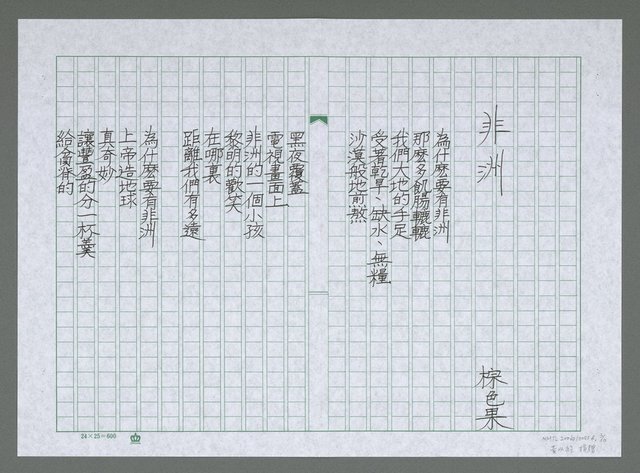 非洲
棕色果
為什麼要有非洲
那麼多飢腸轆轆
我們大地的手足
受著乾旱、缺水、無糧
沙漠般地煎熬
黑夜覆蓋
電視畫面上
非洲的一個小孩
黎明的歡笑
在哪裏
距離我們有多遠
為什麼要有非洲
上帝造地球
真奇妙
讓豐盈的分一杯羹
給貪徠的
24×25=600